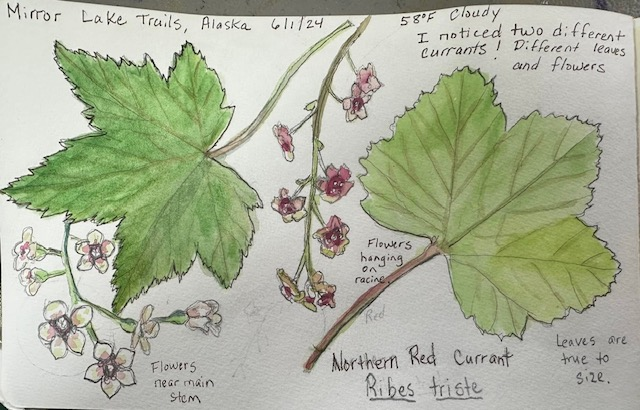 Mirror Lake Trails, Alaska 6/1/24
58°F Cloudy
I noticed two different
currants! Different leaves
and flowers
Flowers
hanging
on
racine.
Red
Flowers
near main
stem
Northern Red Currant
Ribes triste
Leaves are
true to
size.